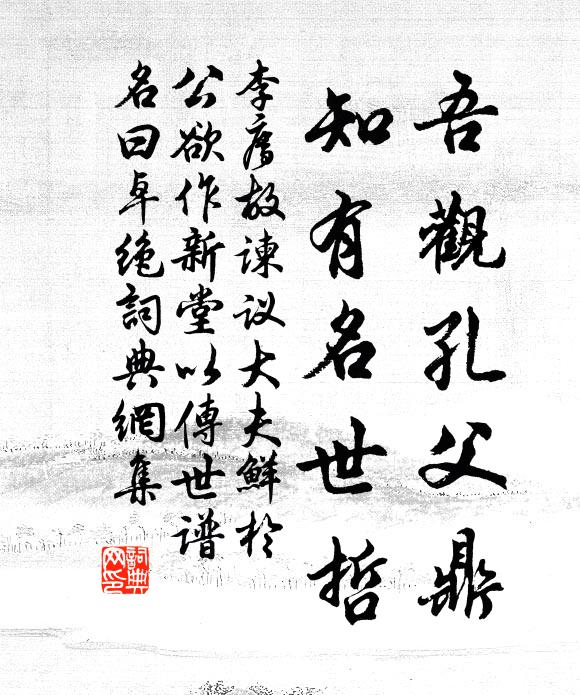 吾觀孔父鼎
知有名世哲
李廌故諫议大夫鮮於
公欲作新堂以傳世谱
名曰卓绝詞典網集
詞典
网印